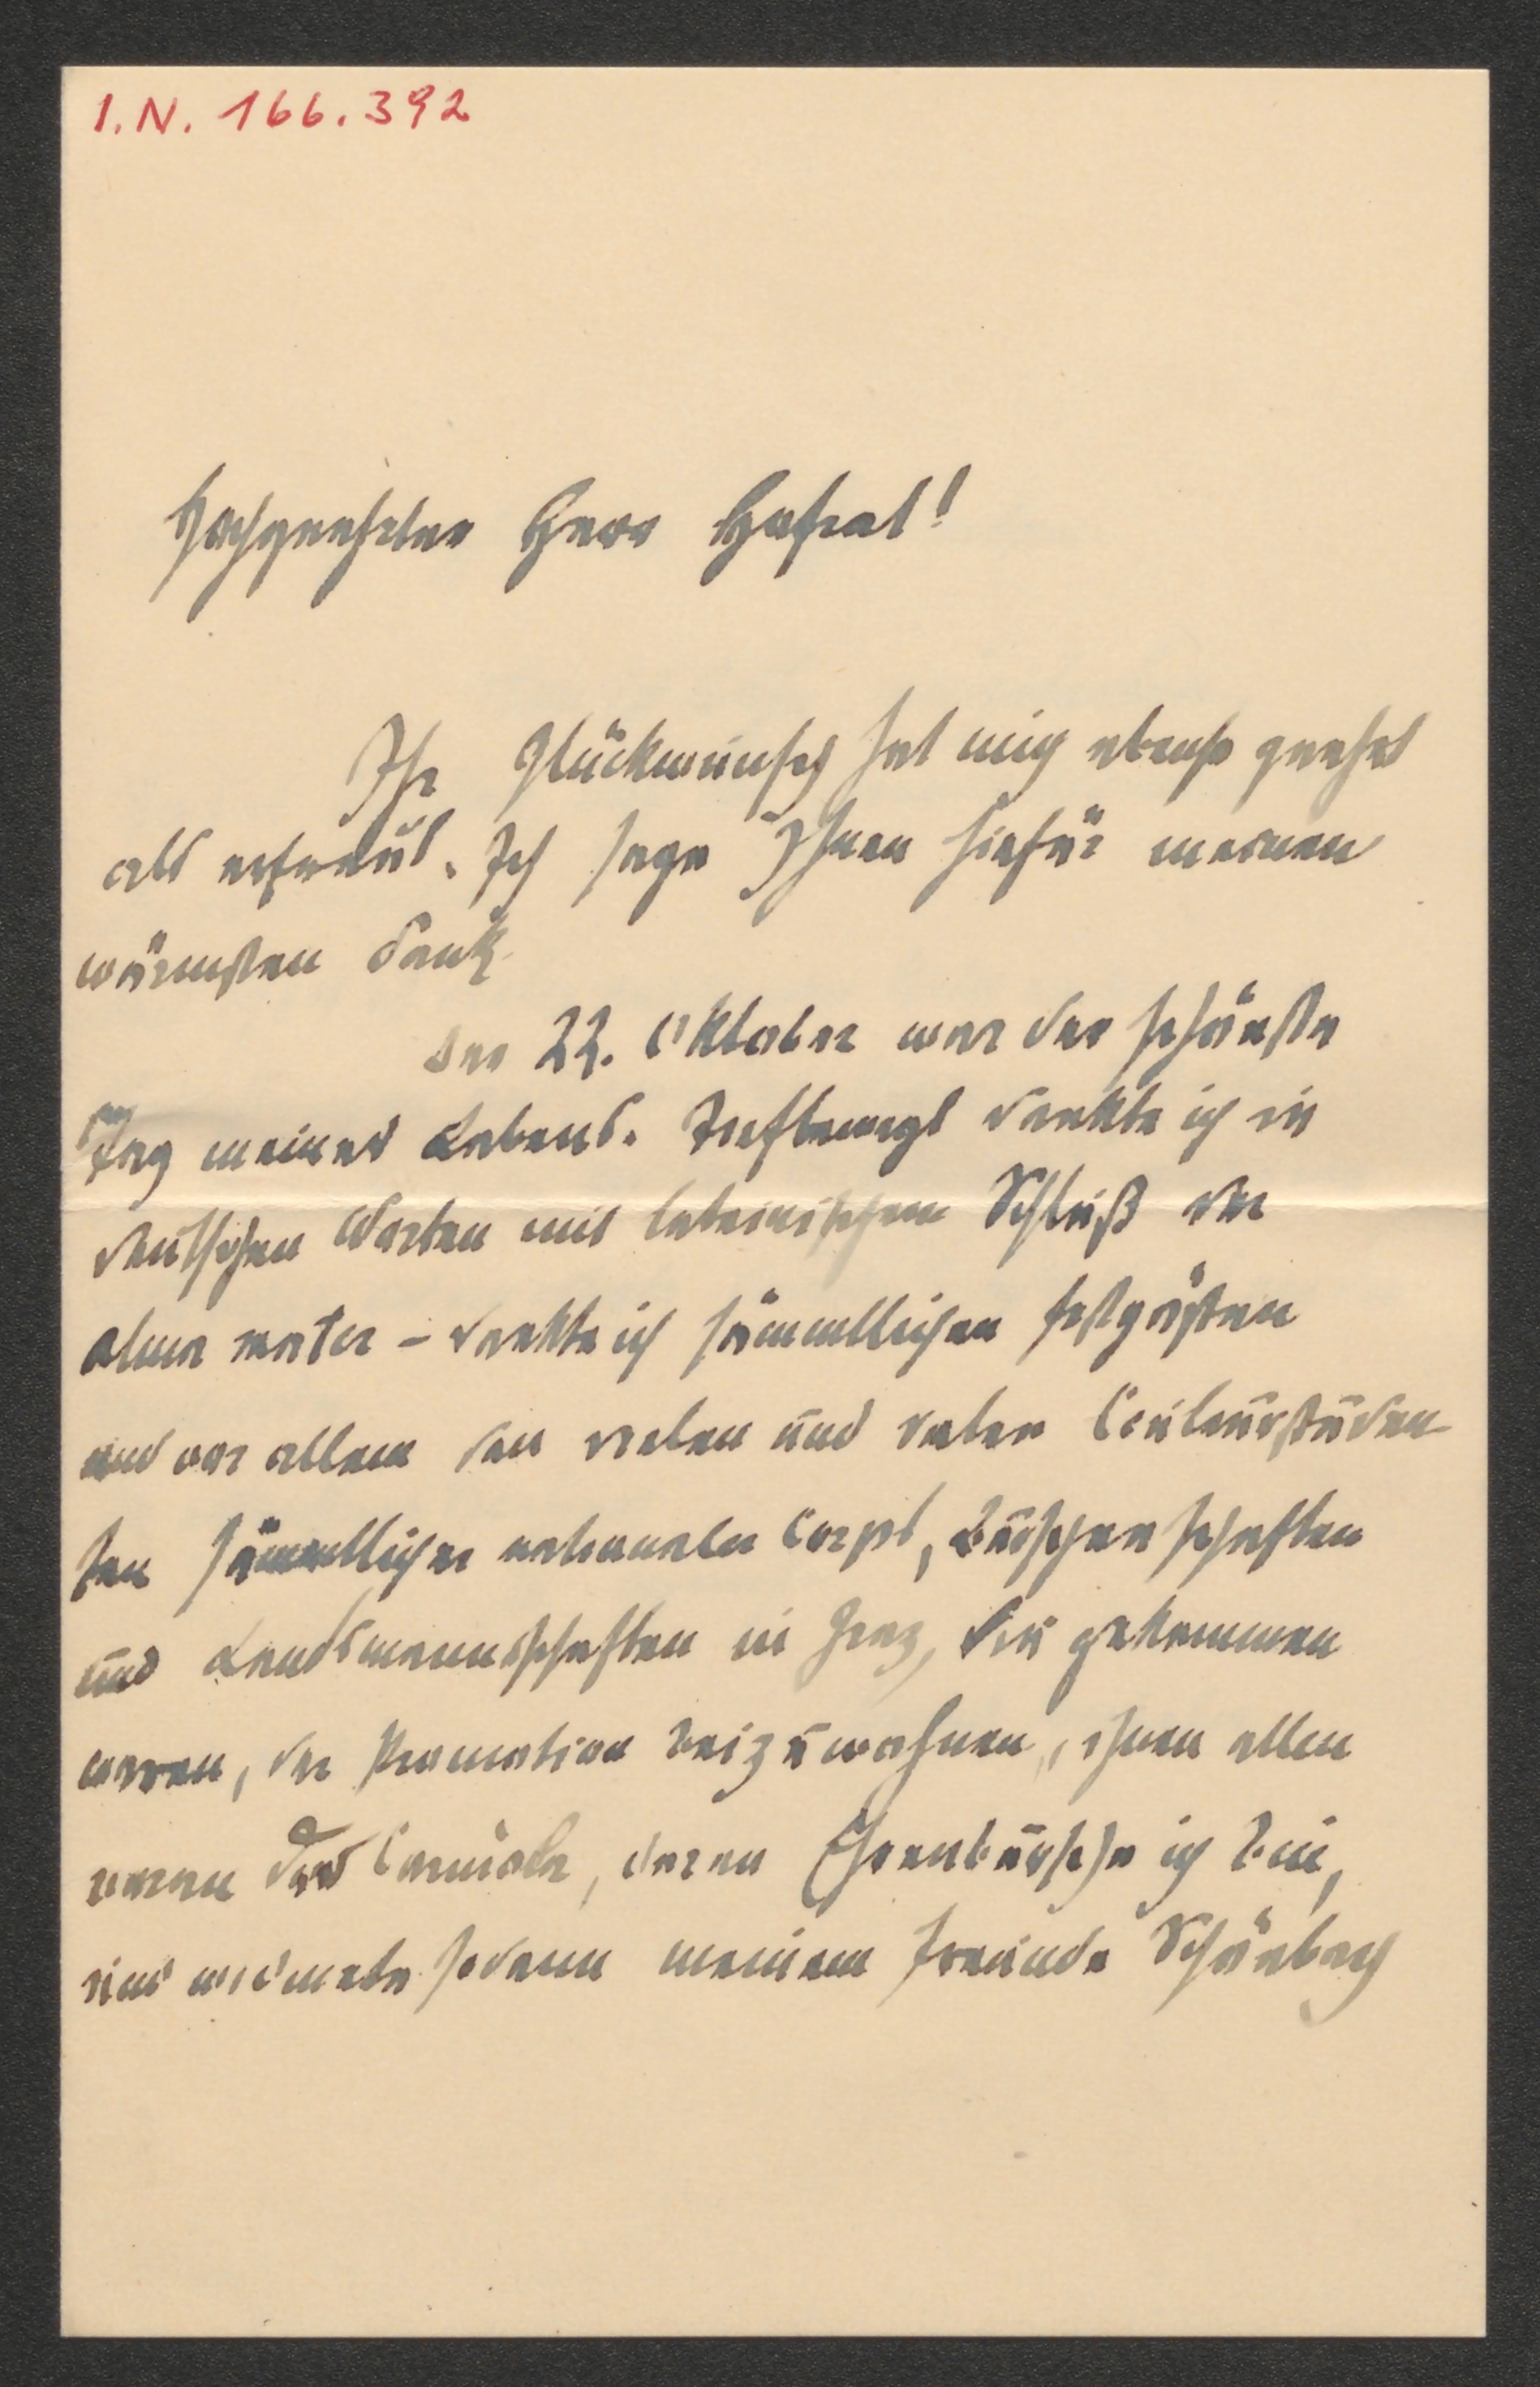 I.N. 166.392
Hochgeehrter Herr Hofrat!
Ihr Glückwunsch hat mich ebenso geehrt
als erfreut. Ich sage Ihnen hiefür meinen
wärmsten Dank
Der 22. Oktober war der schönste
Tag meines Lebens. Tiefbewegt dankte ich in
deutschen Worten mit lateinischem Schluß der
alma mater – dankte ich sämmtlichen Festgästen
und vor allem den vielen und vielen Couleurstuden-
ten sämmtlicher nationaler Corps, Burschenschaften
und Landsmannschaften in Graz, die gekommen
waren, der Promotion beizuwohnen, ihnen allen
voran der Carniola, deren Ehrenbursche ich bin,
und widmete sodann meinem Freunde Schönbach